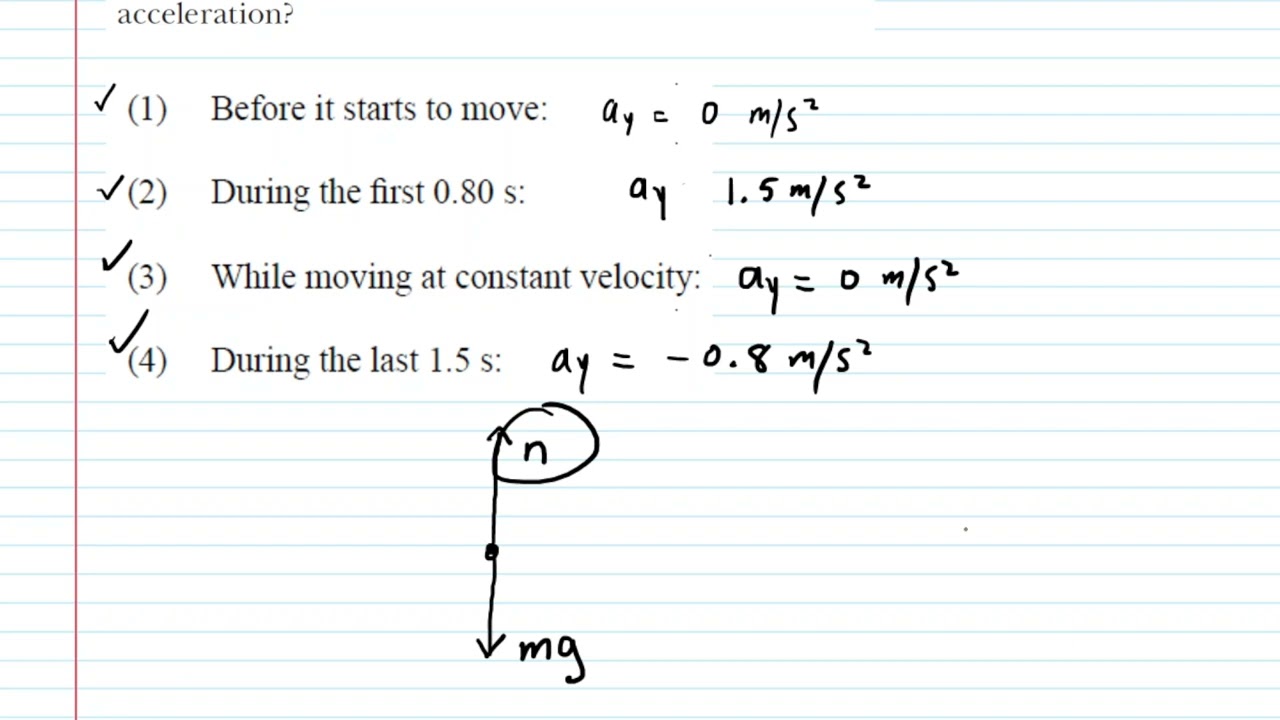 acceleration?
✓ (1) Before it starts to move: ay = 0 m/s²
✓ (2) During the first 0.80 s: ay 1.5 m/s²
✓ (3) While moving at constant velocity: ay = 0 m/s²
✓ (4) During the last 1.5 s: ay = - 0.8 m/s²
n
mg